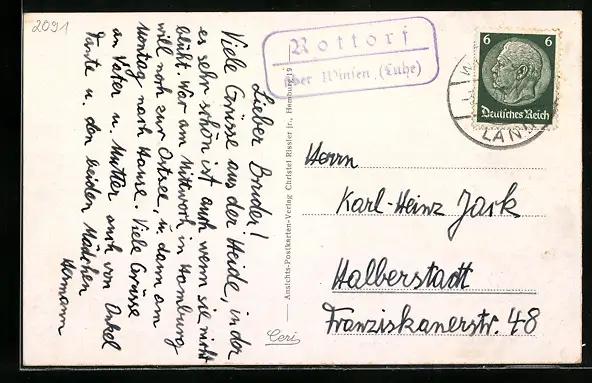 2091
Lieber Bruder!
Viele Grüsse aus der Heide, in der
es sehr schön ist auch wenn sie nicht
blüht. War am Mittwoch in Hamburg
will noch zur Ostsee, u. dann am
Montag nach Hause. Viele Grüsse
an Vater u. Mutter auch von Onkel
Tante u. den beiden Mädchen
Hermann
Ansichts-Postkarten-Verlag Christel Rissler jr., Hamburg 19
Ceri
Rottorf
über Winsen (Luhe)
6 6
Deutsches Reich
LAN
Herrn
Karl-Heinz Jark
Halberstadt
Franziskanerstr. 48